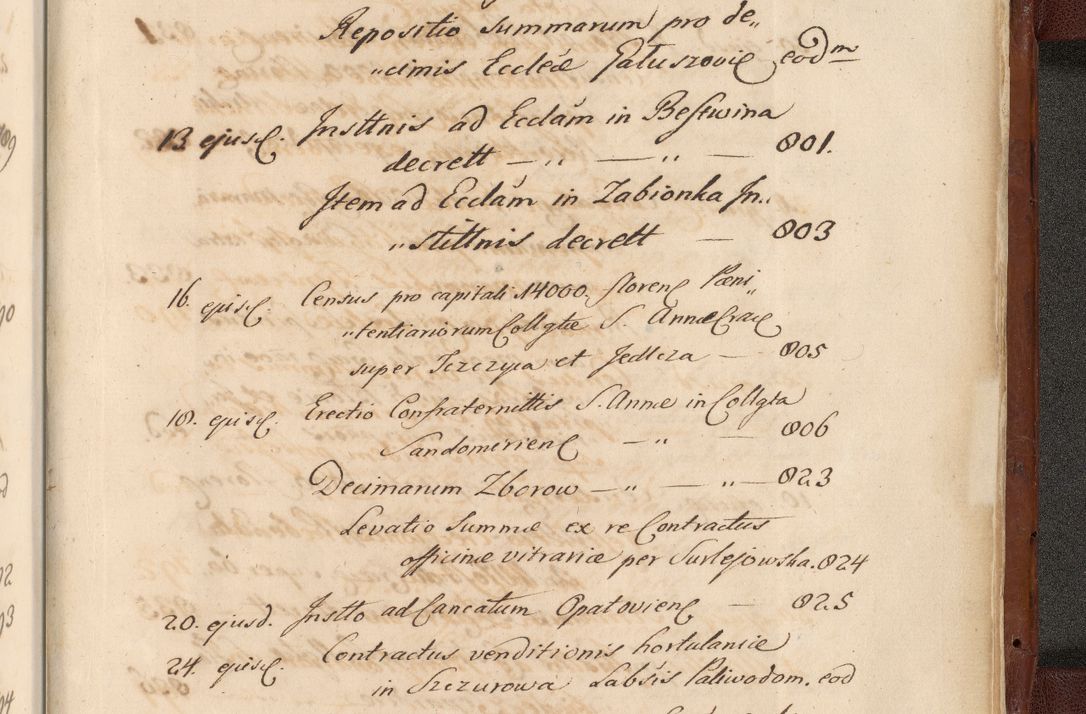 Repositio summarum pro de„
„cimis Eccleæ Gałuszoviẽ eodm
13 ejusd. Insttnis ad Ecclam in Bestwina
decrett — „ — „ — 801.
Item ad Ecclam in Zabionka In„
„stittnis decrett — 803
16. ejusd. Census pro capitali 14000. floren Pæni„
„tentiariorum Collgtæ S. Annæ Crac
super Tczczyca et Jedlcza — 805
18. ejusd. Erectio Confraternittis S. Annæ in Collgta
Sandomirien — „ — 806
Decimarum Zborow — „ — „ — 823
Levatio Summæ ex re Contractus
officinæ vitrariæ per Surlejowska. 824
20. ejusd. Instto ad Cancatum Opatovien — 825
24. ejusd. Contractus venditionis hortulaniæ
in Szczurowa Labsis Paliwodom. eod